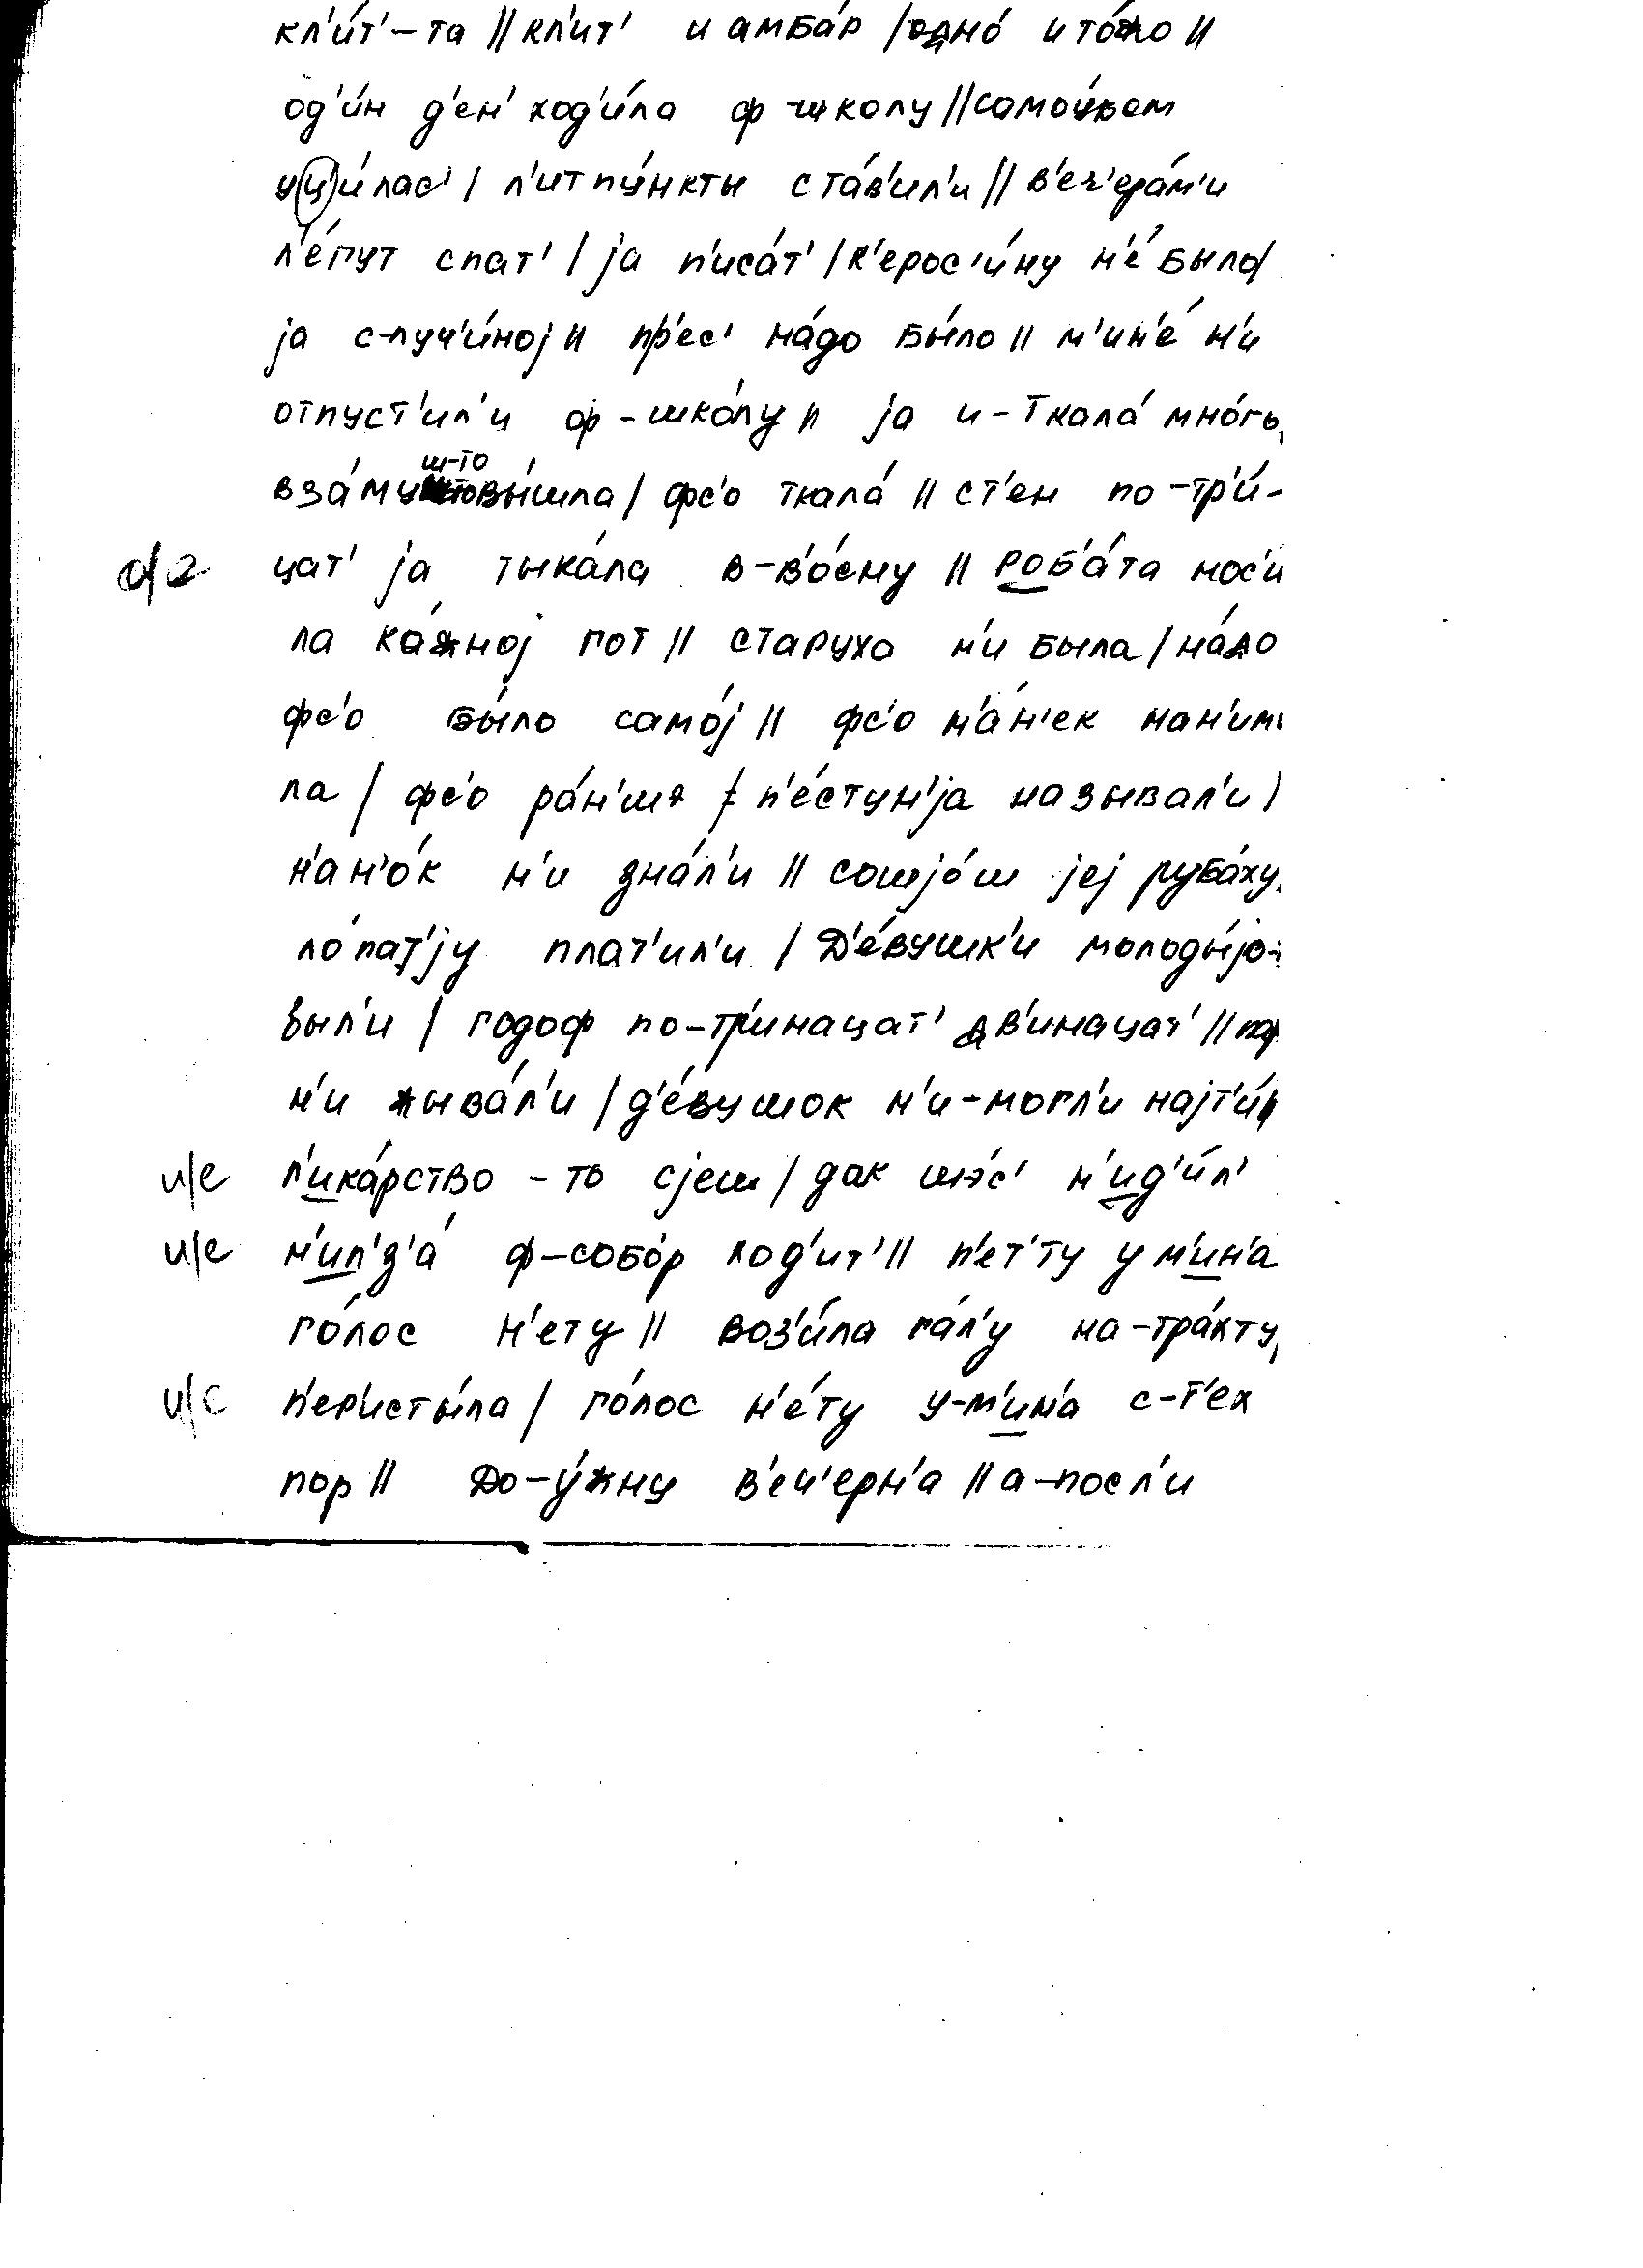 кл'и́т'-та || кл'ит' и амба́р / одно́ и то́жо ||
од'и́н д'ен' ход'и́ла ф-школу || самоу́ком
уц'и́лас' / л'итпу́нкты ста́в'ил'и || в'еч'ера́м'и
л'е́гут спат' / ја п'иса́т' / к'ерос'и́ну н'е́ было /
ја с-луч'и́ној || пр'ес' на́до бы́ло || м'ин'е́ н'и
отпуст'ил'и ф-шко́лу || ја и-ткала́ мно́гъ
вза́му ш-то вы́шла / фс'о ткала́ || ст'ен по-тр'и́-
о/а цат' ја тыка́ла в-в'о́сну || роб'а́та нос'и
ла ка́жној гот || старуха н'и была / на́до
фс'о бы́ло само́ј || фс'о н'а́н'ек нан'им
ла / фс'о ра́н'шэ / п'е́стун'ја называл'и /
н'ан'о́к н'и зна́л'и || сошјо́ш јеј руба́ху
ло́пат'ју плат'ил'и / д'е́вушк'и молоды́јо
был'и / годоф по-тр'инацат' дв'инацат' ||
н'и жыва́л'и / д'е́вушок н'и-могл'и најт'и́ ||
и/е л'ика́рство-то сјеш / дак шэс' н'ид'и́л'
и/е н'ил'з'а́ ф-собо́р ход'ит' || п'ет'ту у м'ин'а
го́лос н'ету || воз'и́ла га́л'у на-тра́кту
и/е п'ер'исты́ла / го́лос н'е́ту у-м'ин'а с-т'ех
пор || до-у́жну в'еч'ерн'а || а-посл'и